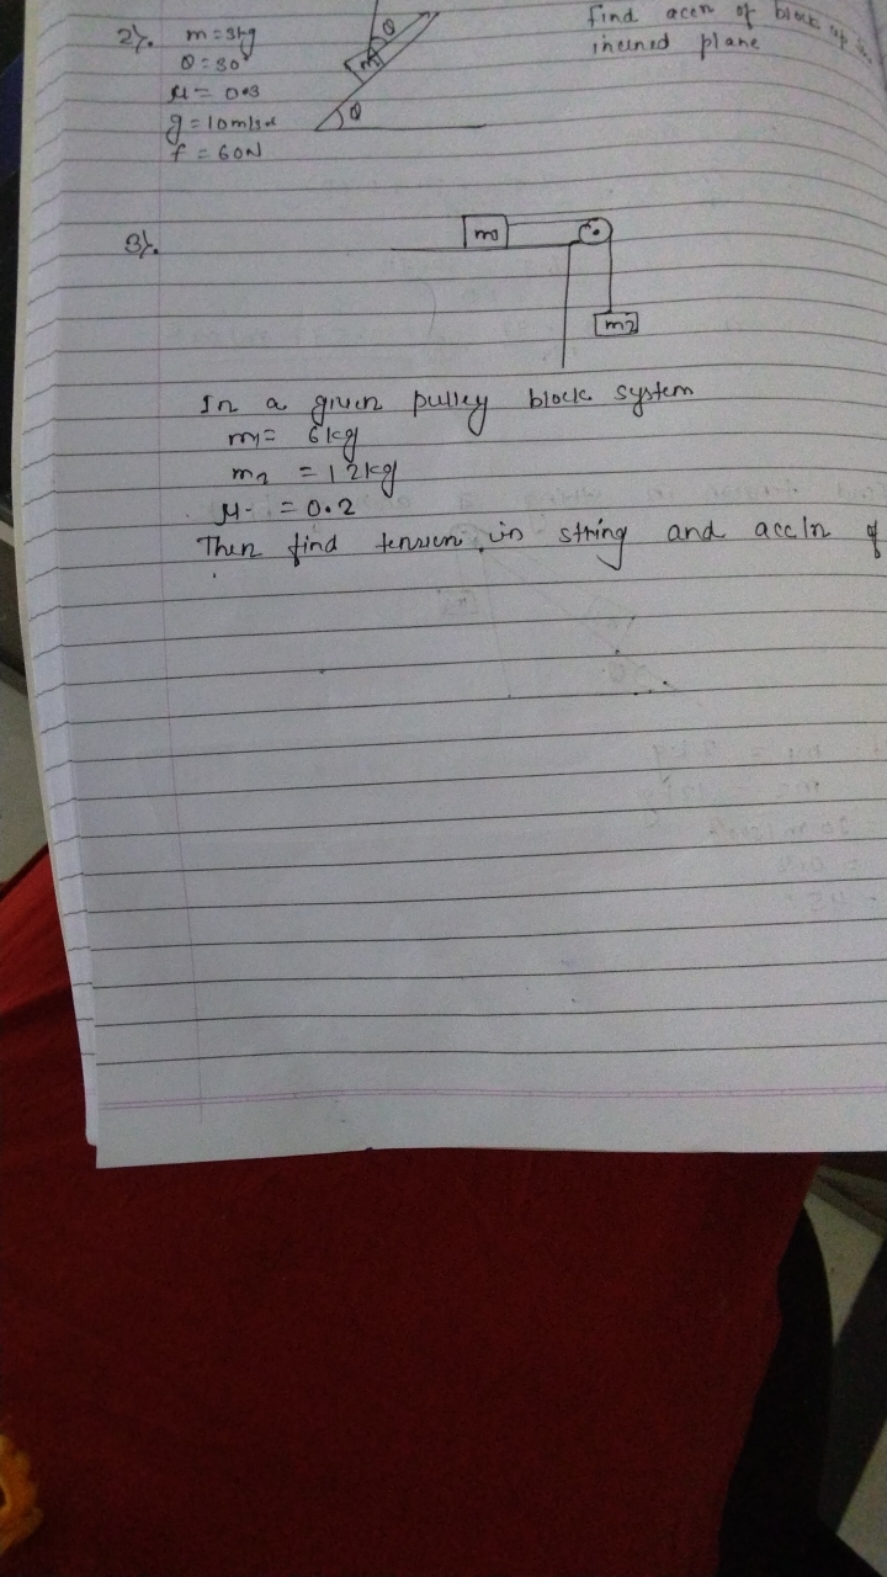 2). m = 3kg
θ = 30°
μ = 0.3
g = 10m/s
f = 60N
θ
m
θ
find accn of block up
inclined plane
3).
m1
m2
In a given pulley block system
m1 = 6kg
m2 = 12kg
μ = 0.2
Then find tension in string and accln of